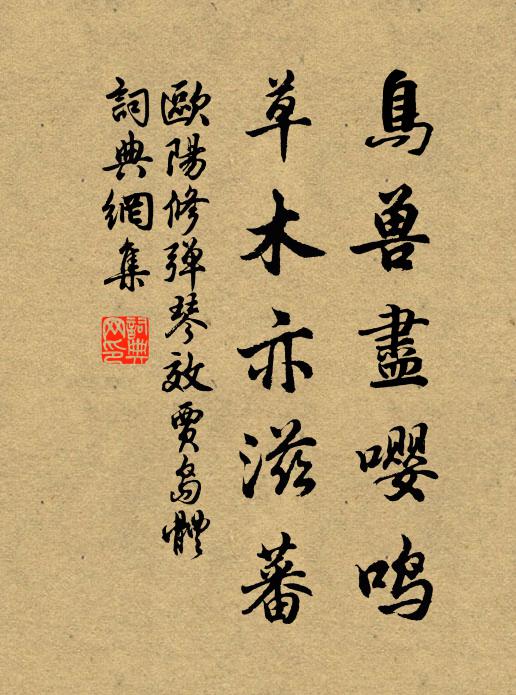 鳥兽盡嚶鸣
草木亦滋蕃
歐陽修弹琴效賈島體
詞典網集
詞典网印